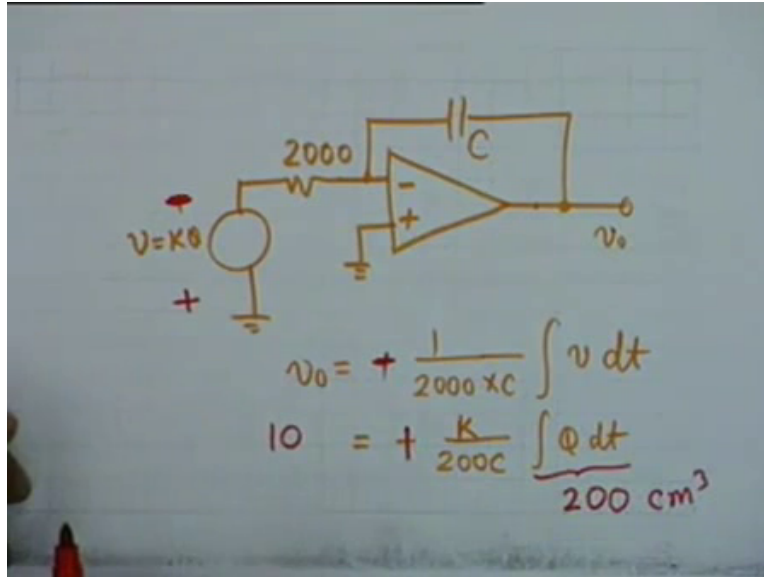 2000
C
-
-
+
v=KQ
+
v₀
v₀ = + 1/(2000 × C) ∫ v dt
10 = + K/(200C) ∫ Q dt
200 cm³